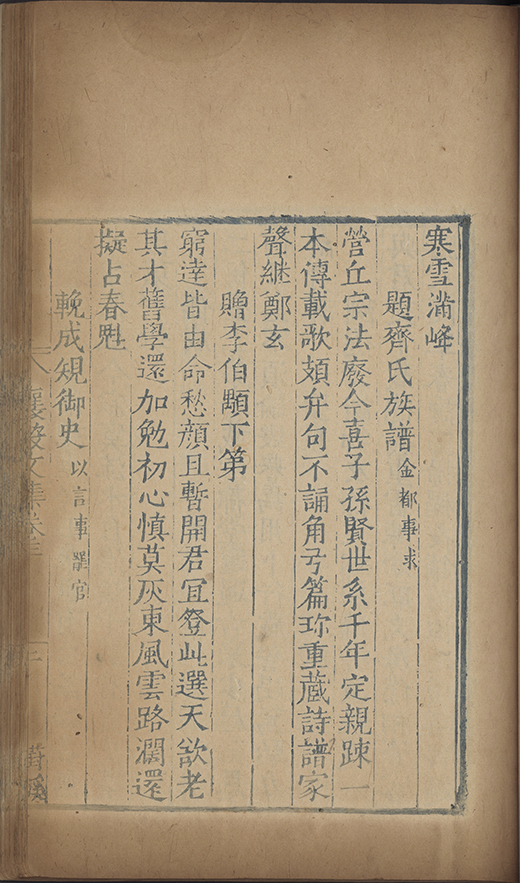 寒雪滿峰
題齊氏族譜 金都事求
營丘宗法廢今喜子孫賢世系千年定親踈一
本傳載歌頍弁句不誦角弓篇珎重蔵詩譜家
聲継鄭玄
贈李伯顒下第
窮達皆由命愁顏且暫開君冝登此選天欲老
其才舊學還加勉初心慎莫灰東風雲路濶還
擬占春魁
輓成䂓御史 以言事罷官
文集卷三